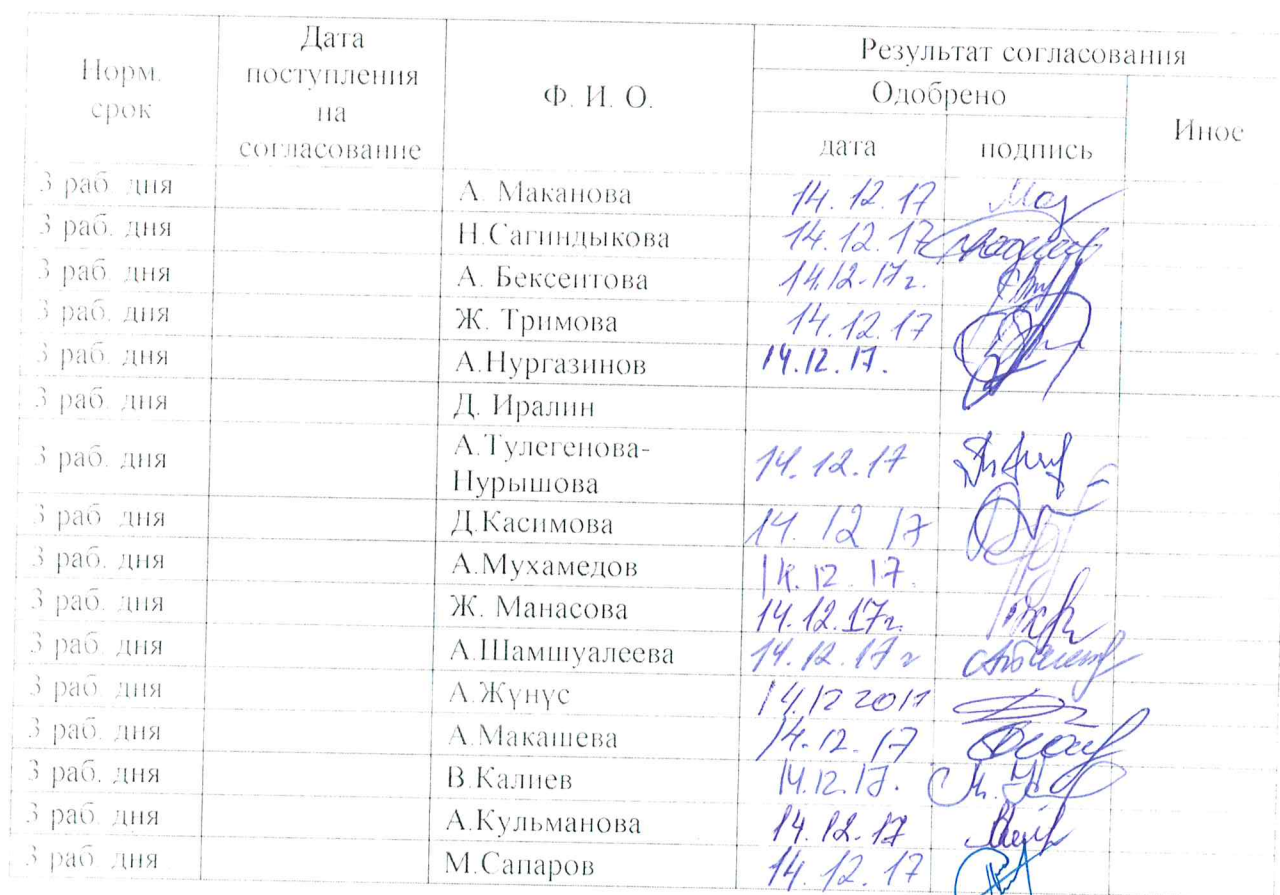 Норм. срок
Дата поступления на согласование
Ф. И. О.
Результат согласования
Одобрено
Иное
дата
подпись
3 раб. дня А. Маканова 14.12.17
3 раб. дня Н.Сагиндыкова 14.12.17
3 раб. дня А. Бексеитова 14.12.17г.
3 раб. дня Ж. Тримова 14.12.17
3 раб. дня А.Нургазинов 14.12.17.
3 раб. дня Д. Иралин
3 раб. дня А.Тулегенова-
Нурышова 14.12.17
3 раб. дня Д.Касимова 14.12 17
3 раб. дня А.Мухамедов 12.17.
3 раб. дня Ж. Манасова 14.12.17г.
3 раб. дня А.Шамшуалеева 14.12.17г
3 раб. дня А.Жүнүс 14.12 2017
3 раб. дня А.Макашева 14.12.17
3 раб. дня В.Калиев 14.12.17.
3 раб. дня А.Кульманова 14.12.17
3 раб. дня М.Сапаров 14.12.17